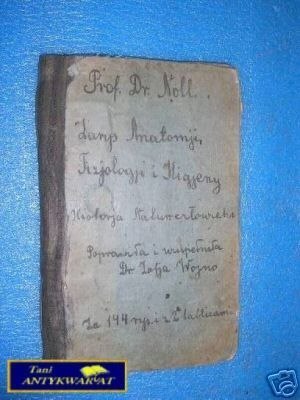 Prof. Dr. Noll.
Zarys Anatomji,
Fizjologji i Higjeny
Historja Natur. człowieka
Poprawiła i uzupełniła
Dr Zofja Wojno
Za 144 ryc. i z 2 tablicami
Tani
ANTYKWARIAT